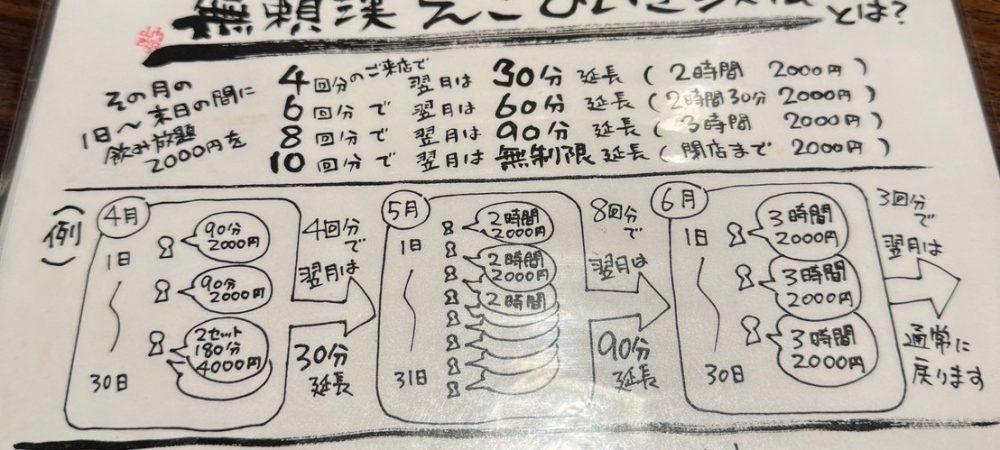 無頼漢 えこひいきシステム とは?
その月の
1日〜末日の間に
飲み放題
2000円を
4回分のご来店で 翌月は 30分 延長 (2時間 2000円)
6回分で 翌月は 60分 延長 (2時間30分 2000円)
8回分で 翌月は 90分 延長 (3時間 2000円)
10回分で 翌月は 無制限 延長 (閉店まで 2000円)
(例)
4月
1日
30日
90分
2000円
90分
2000円
2セット
180分
4000円
4回分
で
翌月は
30分
延長
5月
1日
31日
2時間
2000円
2時間
2000円
2時間
8回分
で
翌月は
90分
延長
6月
1日
30日
3時間
2000円
3時間
2000円
3時間
2000円
3回分
で
翌月は
通常に
戻ります